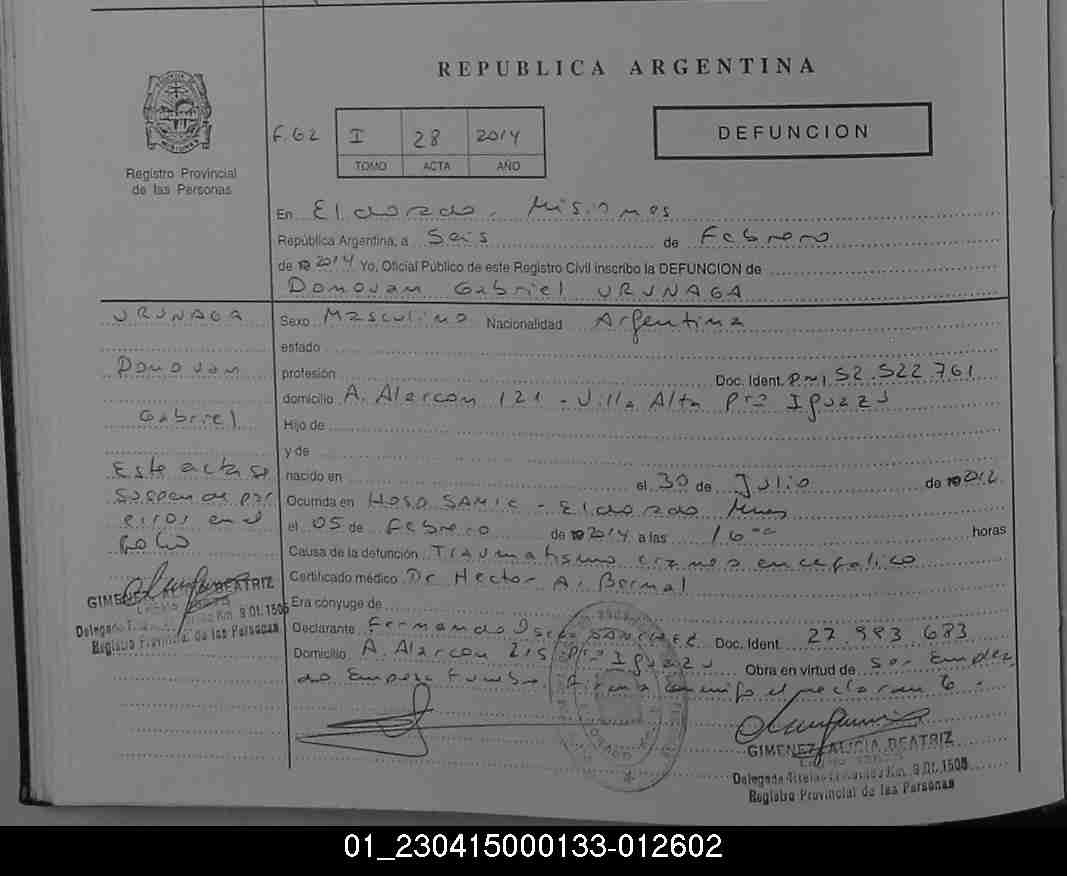 REPUBLICA ARGENTINA
F. 62 I 28 2014
TOMO ACTA AÑO
DEFUNCION
Registro Provincial
de las Personas
En Eldorado, Misiones
República Argentina, a Seis de Febrero
de 19 2014 Yo, Oficial Público de este Registro Civil inscribo la DEFUNCION de
Donovan Gabriel URUNAGA
URUNAGA
Donovan
Gabriel
Este acta se
suspende por
error en el
folio
GIMENEZ BEATRIZ
Km. 9.01.1506
Registro Provincial de las Personas
Sexo Masculino Nacionalidad Argentina
estado
profesión Doc. Ident. DNI 52.522.761
domicilio A. Alarcon 121 - Villa Alta Pto Iguazu
Hijo de
y de
nacido en el 30 de Julio de 19 2012
Ocurrida en Hosp SAMIC - Eldorado Mnes
el 05 de Febrero de 19 2014 a las 16 horas
Causa de la defunción Traumatismo craneo encefalico
Certificado médico Dr Hector A. Bernal
Era cónyuge de
Declarante Fernando SANCHEZ Doc. Ident. 27.993.683
Domicilio A. Alarcon 215 Pto Iguazu Obra en virtud de ser emplea
do Empesa Funebre Firma conmigo el declarante
GIMENEZ ALICIA BEATRIZ
Delegada Titular Eldorado Km. 9.01.1506
Registro Provincial de las Personas
01_230415000133-012602